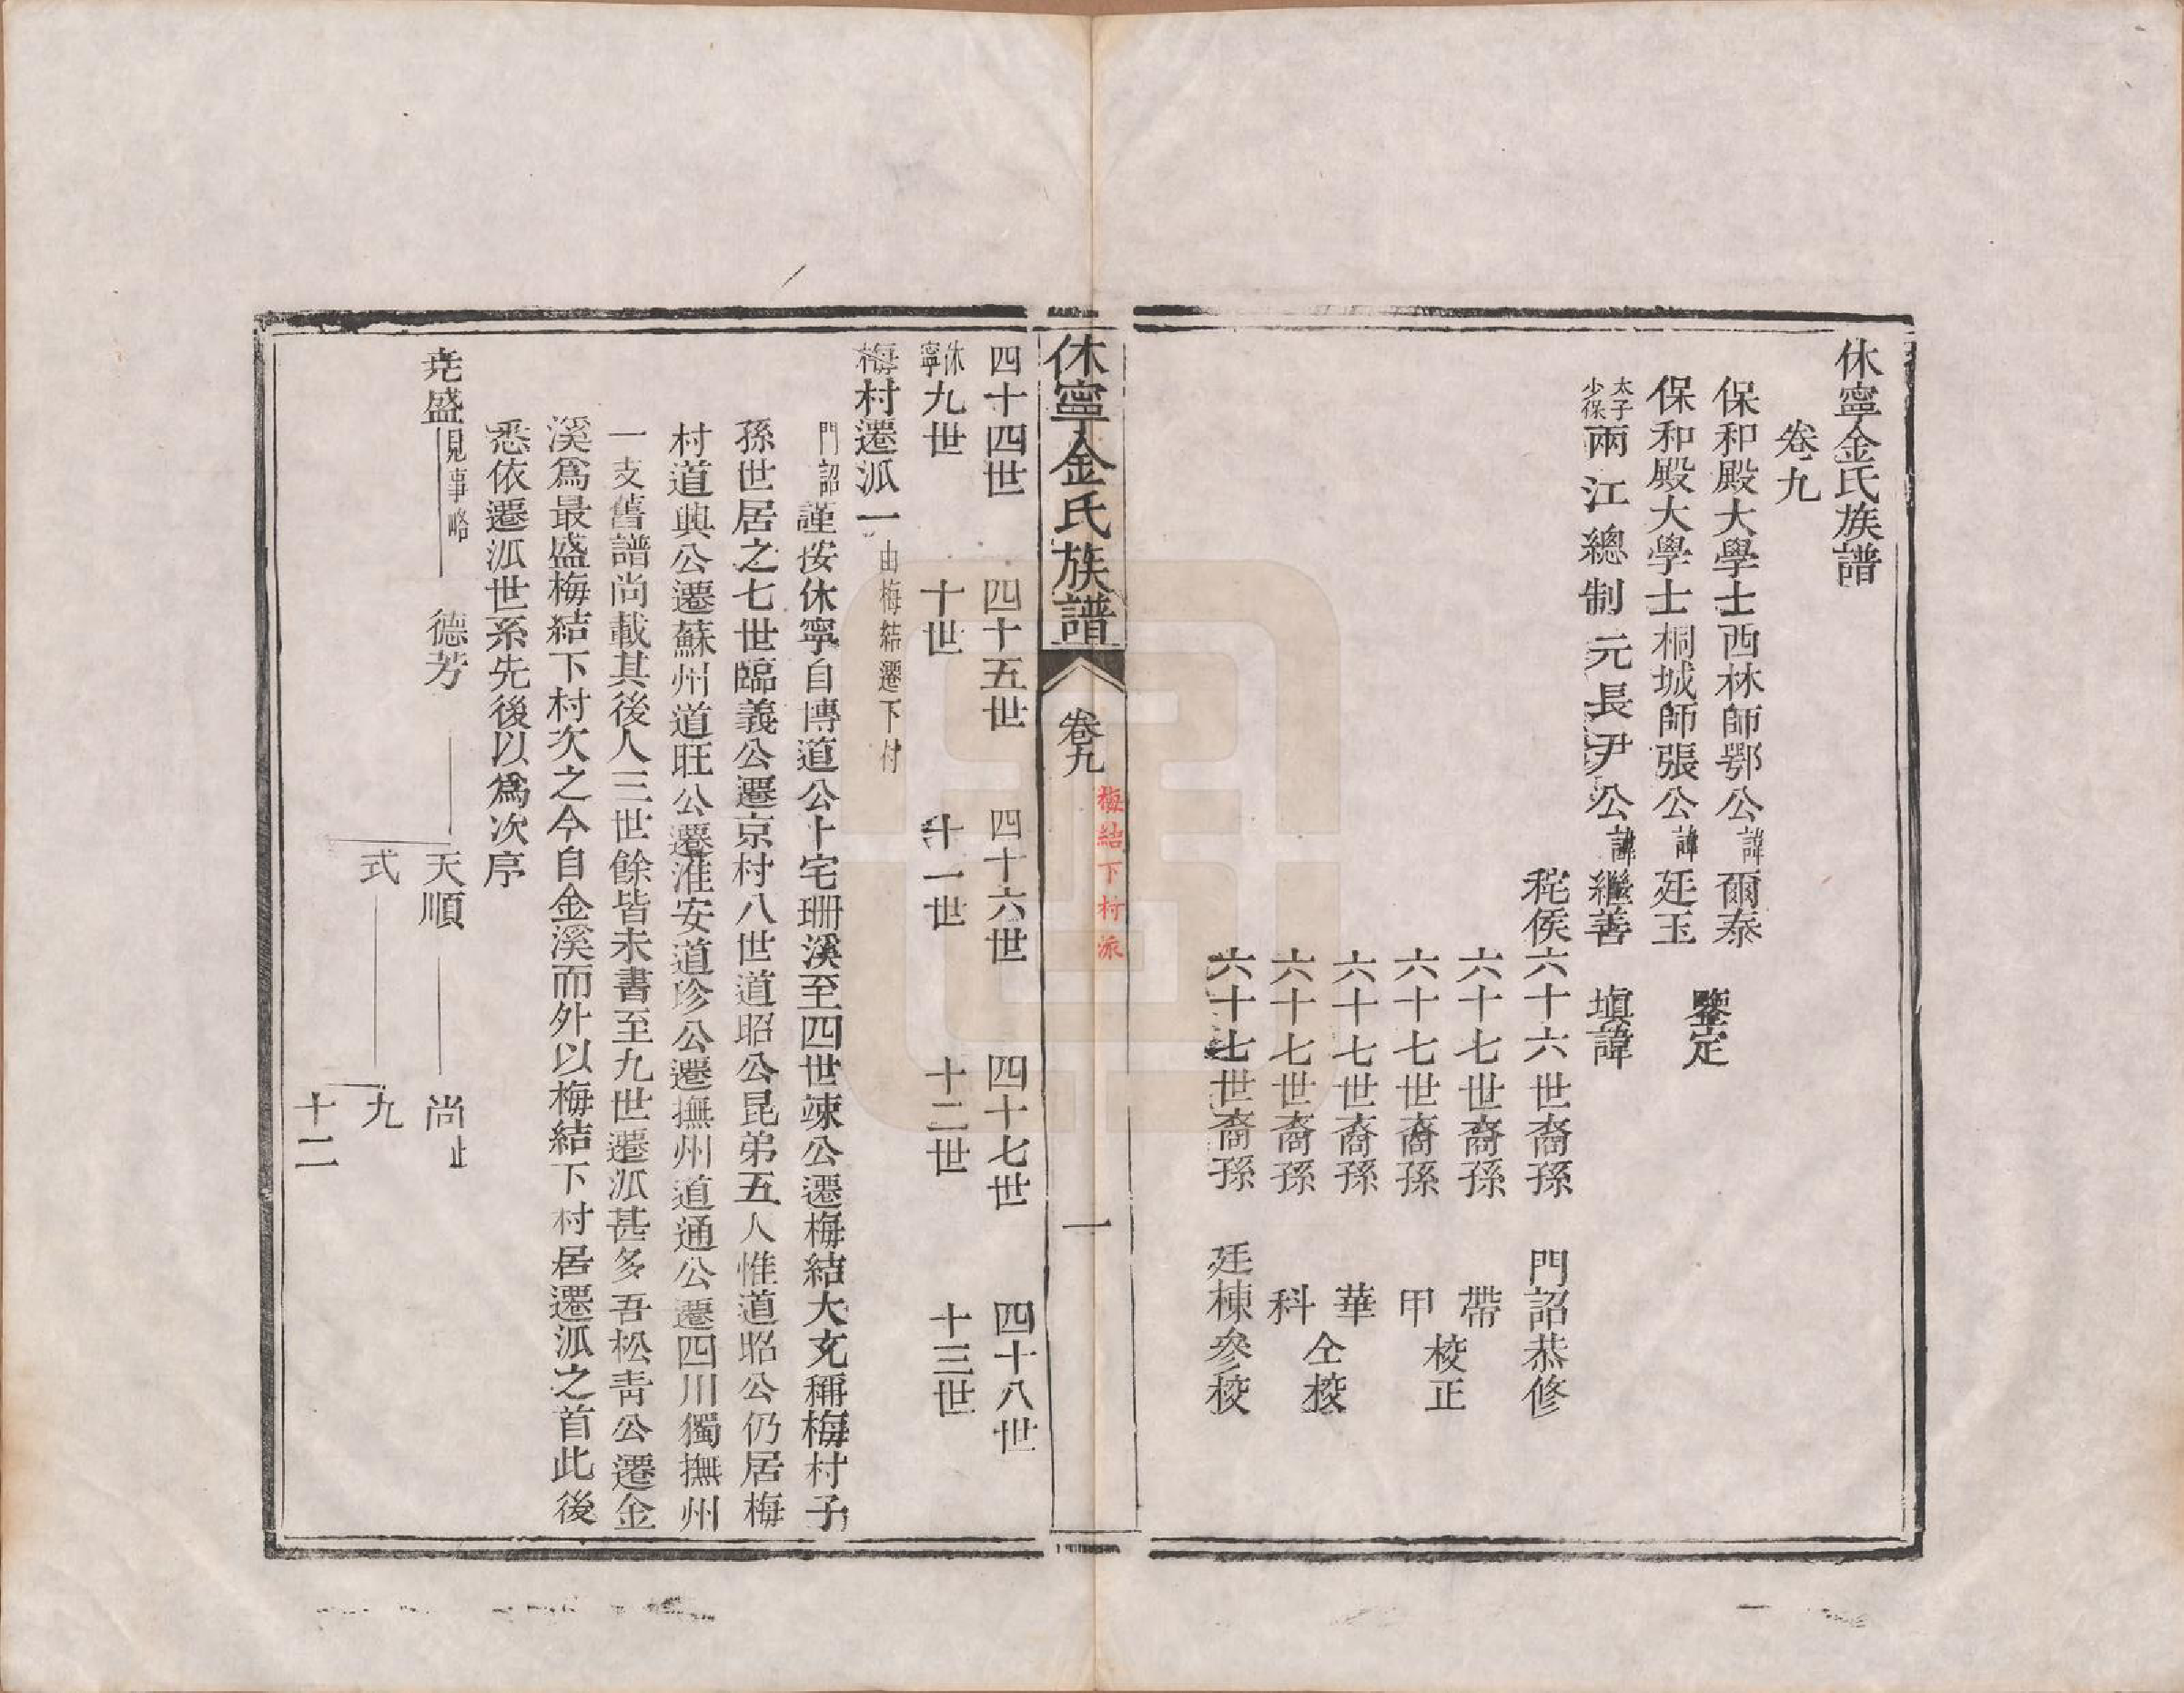 休寧金氏族譜
卷九
保和殿大學士西林師鄂公諱爾泰
保和殿大學士桐城師張公諱廷玉
鑒定
太子少保兩江總制元長尹公諱繼善 填諱
秺侯六十六世裔孫 門詔恭修
六十七世裔孫 帶
六十七世裔孫 甲
校正
六十七世裔孫 華
六十七世裔孫 科
仝校
六十七世裔孫 廷棟參校
休寧金氏族譜 卷九 一
梅結下村派
四十四世 四十五世 四十六世 四十七世 四十八世
休寧九世 十世 十一世 十二世 十三世
梅村遷派一 由梅結遷下村
門詔謹按休寧自博道公卜宅珊溪至四世竦公遷梅結大充稱梅村子
孫世居之七世臨義公遷京村八世道昭公昆弟五人惟道昭公仍居梅
村道興公遷蘇州道旺公遷淮安道珍公遷撫州道通公遷四川獨撫州
一支舊譜尚載其後人三世餘皆未書至九世遷派甚多吾松青公遷金
溪爲最盛梅結下村次之今自金溪而外以梅結下村居遷派之首此後
悉依遷派世系先後以爲次序
尭盛 見事略 德芳 天順 尚 止
式 九
十二